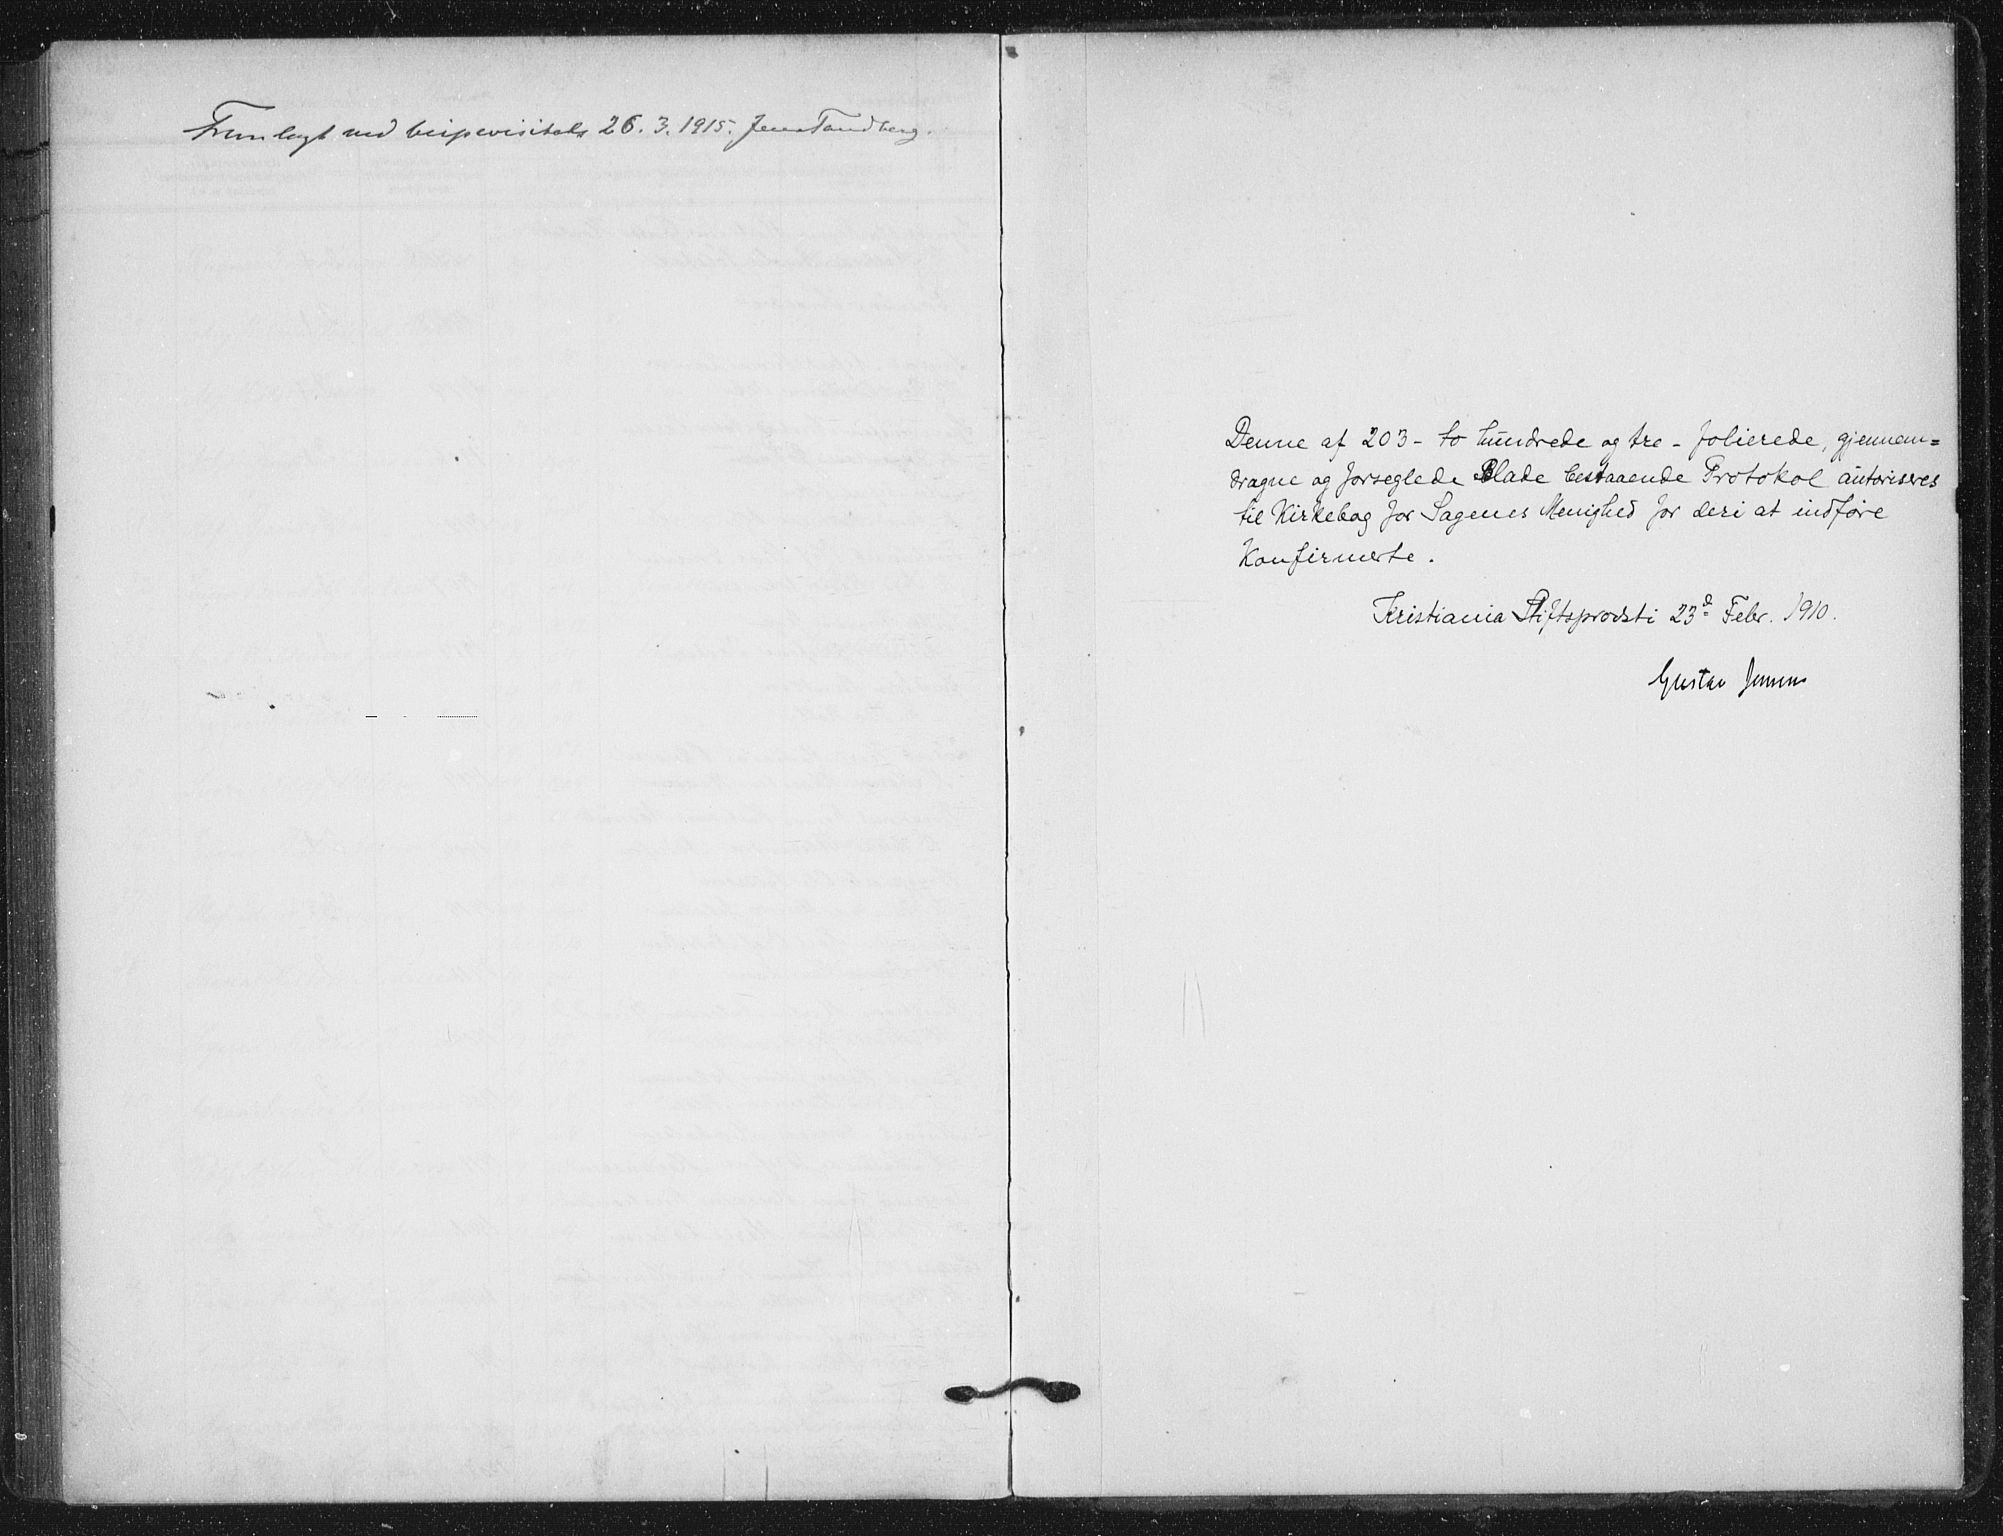 Fremlagt ved bispevisitats 26.3.1915. Jens Tandberg.
Denne af 203 - to hundrede og tre - folierede, gjennem=
dragne og forseglede Blade bestaaende Protokol autoriseres
til Kirkebog for Sagenes Menighed for deri at indføre
Konfirmerte.
Kristiania Stiftsprovsti 23d Febr. 1910.
Gustav Jensen